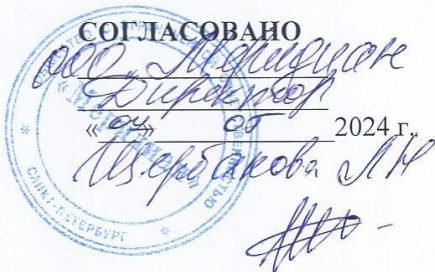 СОГЛАСОВАНО
ООО „Меридиан
Директор
«04» 05 2024 г.
Щербакова ЛН
САНКТ-ПЕТЕРБУРГ